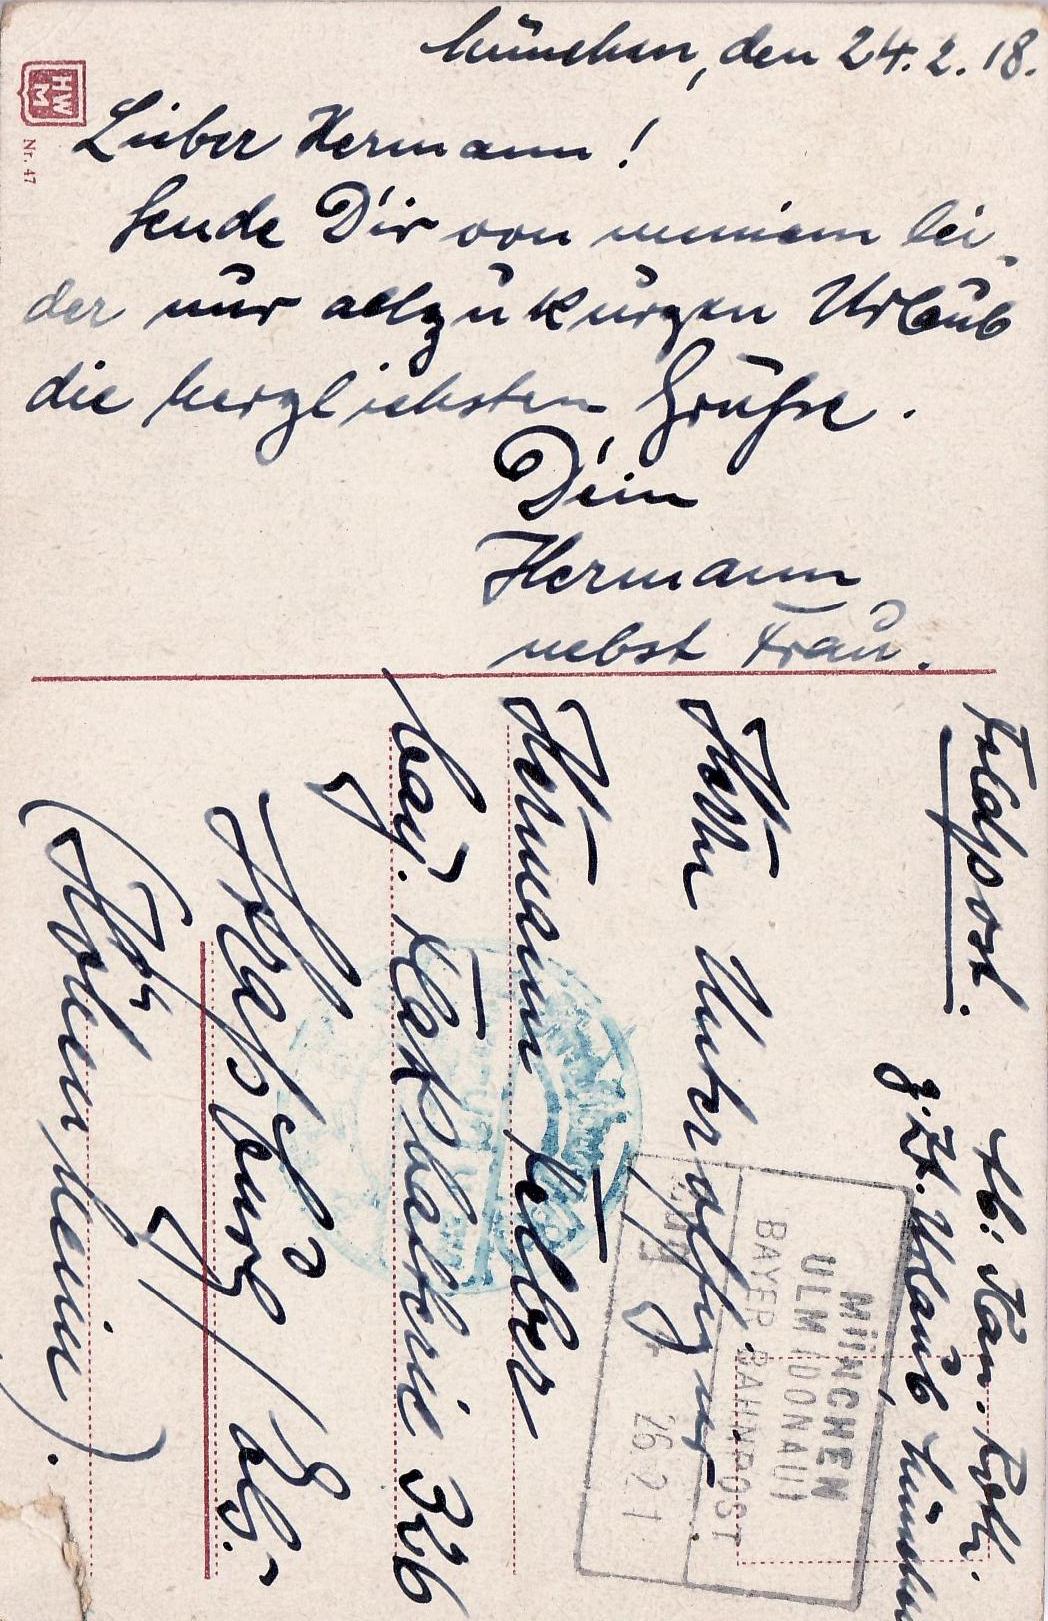 München, den 24.2.18.
HW
M
Nr. 47
Lieber Hermann!
Sende Dir von meinem lei-
der nur allzu kurzen Urlaub
die herzlichsten Grüße.
Dein
Hermann
nebst Frau.
Feldpost.
Ab: Kan.
z. Zt. Urlaub München
Herrn Unteroffizier
Hermann
bay. Flakbatterie 326
Straßburg / Els.
MÜNCHEN
ULM (DONAU)
BAYER BAHNPOST
26 2 1